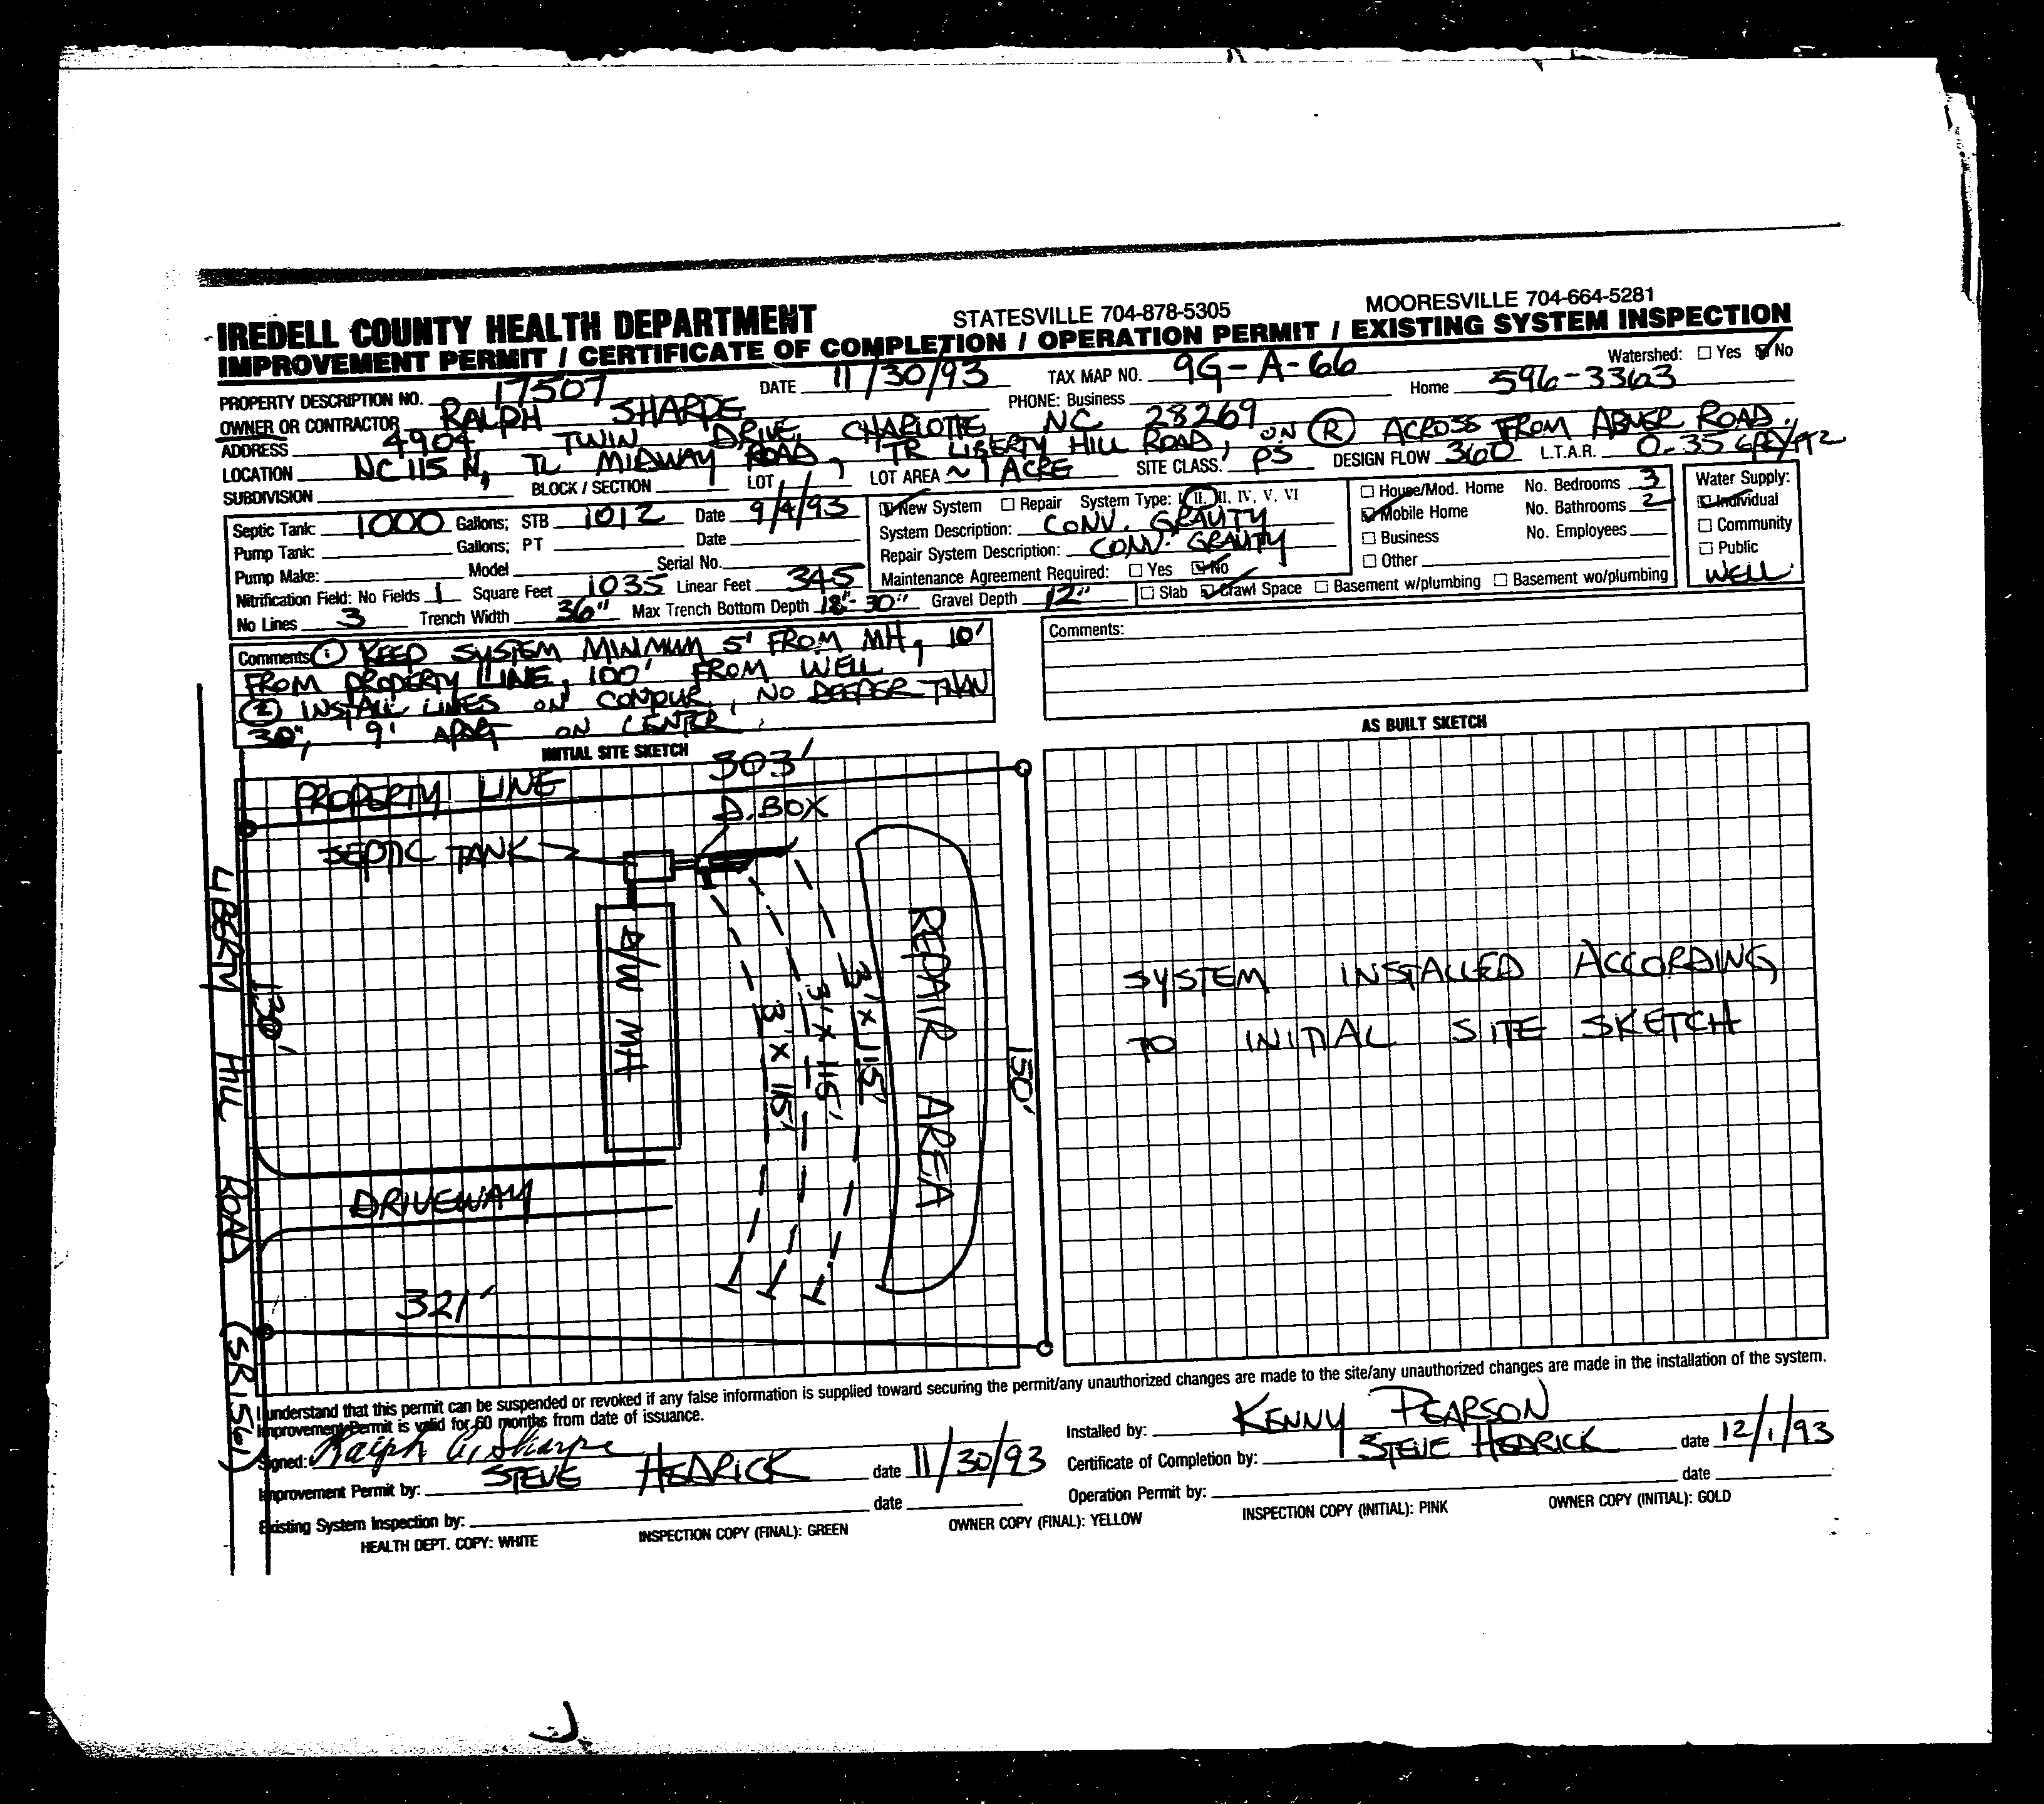 IREDELL COUNTY HEALTH DEPARTMENT STATESVILLE 704-878-5305 MOORESVILLE 704-664-5281
IMPROVEMENT PERMIT / CERTIFICATE OF COMPLETION / OPERATION PERMIT / EXISTING SYSTEM INSPECTION
Watershed: ☐ Yes ☑ No
PROPERTY DESCRIPTION NO. 17507 DATE 11/30/93 TAX MAP NO. 9G-A-66
OWNER OR CONTRACTOR RALPH SHARPE PHONE: Business Home 596-3363
ADDRESS 4904 TWIN DRIVE, CHARLOTTE NC 28269
LOCATION NC 115 N, TL MIDWAY ROAD, TR LIBERTY HILL ROAD, ON (R) ACROSS FROM ABNER ROAD.
SUBDIVISION BLOCK / SECTION LOT LOT AREA ~ 1 ACRE SITE CLASS. PS DESIGN FLOW 360 L.T.A.R. 0.35 GPD/FT2
Septic Tank: 1000 Gallons; STB 1012 Date 9/4/93
Pump Tank: Gallons; PT Date
Pump Make: Model Serial No.
Nitrification Field: No Fields 1 Square Feet 1035 Linear Feet 345
No Lines 3 Trench Width 36" Max Trench Bottom Depth 18"-30" Gravel Depth 12"
☑ New System ☐ Repair System Type: I, II, III, IV, V, VI
System Description: CONV. GRAVITY
Repair System Description: CONV. GRAVITY
Maintenance Agreement Required: ☐ Yes ☑ No
☐ House/Mod. Home No. Bedrooms 3
☑ Mobile Home No. Bathrooms 2
☐ Business No. Employees
☐ Other
☐ Slab ☑ Crawl Space ☐ Basement w/plumbing ☐ Basement wo/plumbing
Water Supply:
☑ Individual
☐ Community
☐ Public
WELL
Comments: (1) KEEP SYSTEM MINIMUM 5' FROM MH, 10'
FROM PROPERTY LINE, 100' FROM WELL
(2) INSTALL LINES ON CONTOUR, NO DEEPER THAN
30", 9' APART ON CENTER.
Comments:
INITIAL SITE SKETCH
303'
PROPERTY LINE
D.BOX
SEPTIC TANK
D/W MH
3' x 115'
3' x 115'
3' x 115'
REPAIR AREA
150'
130'
LIBERTY HILL ROAD (SR 1561)
DRIVEWAY
321'
AS BUILT SKETCH
SYSTEM INSTALLED ACCORDING
TO INITIAL SITE SKETCH
I understand that this permit can be suspended or revoked if any false information is supplied toward securing the permit/any unauthorized changes are made to the site/any unauthorized changes are made in the installation of the system.
Improvement Permit is valid for 60 months from date of issuance.
Signed: Ralph G. Sharpe
Improvement Permit by: STEVE HEDRICK date 11/30/93
Existing System Inspection by: date
Installed by: KENNY PEARSON
Certificate of Completion by: STEVE HEDRICK date 12/1/93
Operation Permit by: date
HEALTH DEPT. COPY: WHITE INSPECTION COPY (FINAL): GREEN OWNER COPY (FINAL): YELLOW INSPECTION COPY (INITIAL): PINK OWNER COPY (INITIAL): GOLD